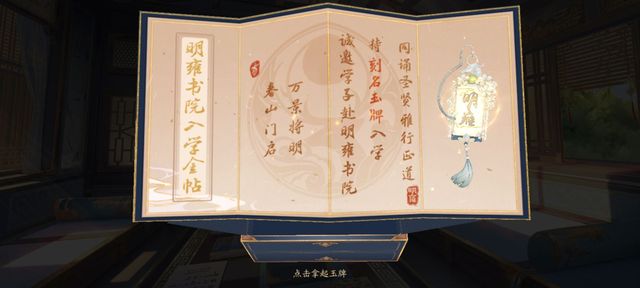 明雍书院入学金帖
春山门启
万景将明
诚邀学子赴明雍书院
持刻名玉牌入学
同诵圣贤 雅行正道
明雍
点击拿起玉牌